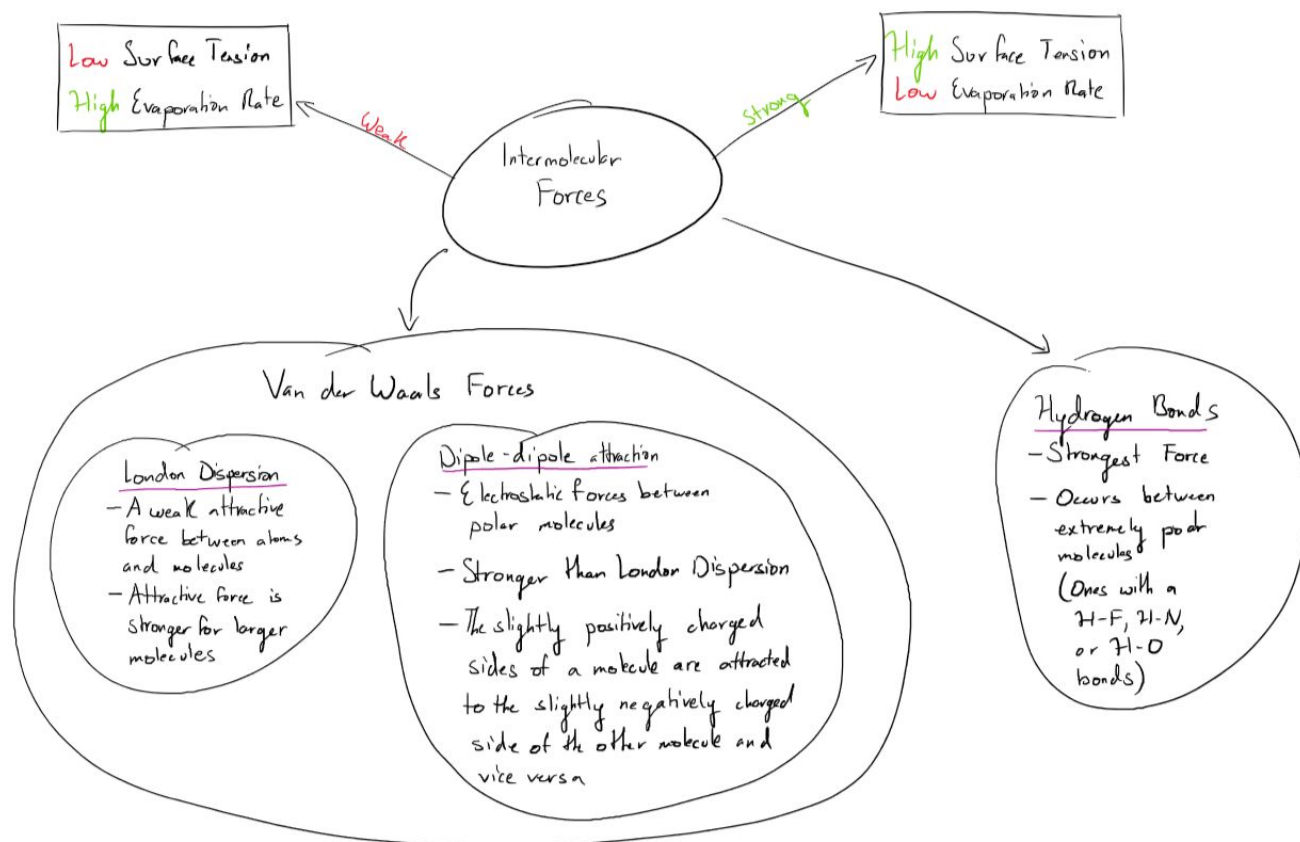 Low Surface Tension
High Evaporation Rate
Weak
Intermolecular
Forces
Strong
High Surface Tension
Low Evaporation Rate
Van der Waals Forces
London Dispersion
- A weak attractive
force between atoms
and molecules
- Attractive force is
stronger for larger
molecules
Dipole-dipole attraction
- Electrostatic forces between
polar molecules
- Stronger than London Dispersion
- The slightly positively charged
sides of a molecule are attracted
to the slightly negatively charged
side of the other molecule and
vice versa
Hydrogen Bonds
- Strongest Force
- Occurs between
extremely polar
molecules
(Ones with a
H-F, H-N,
or H-O
bonds)